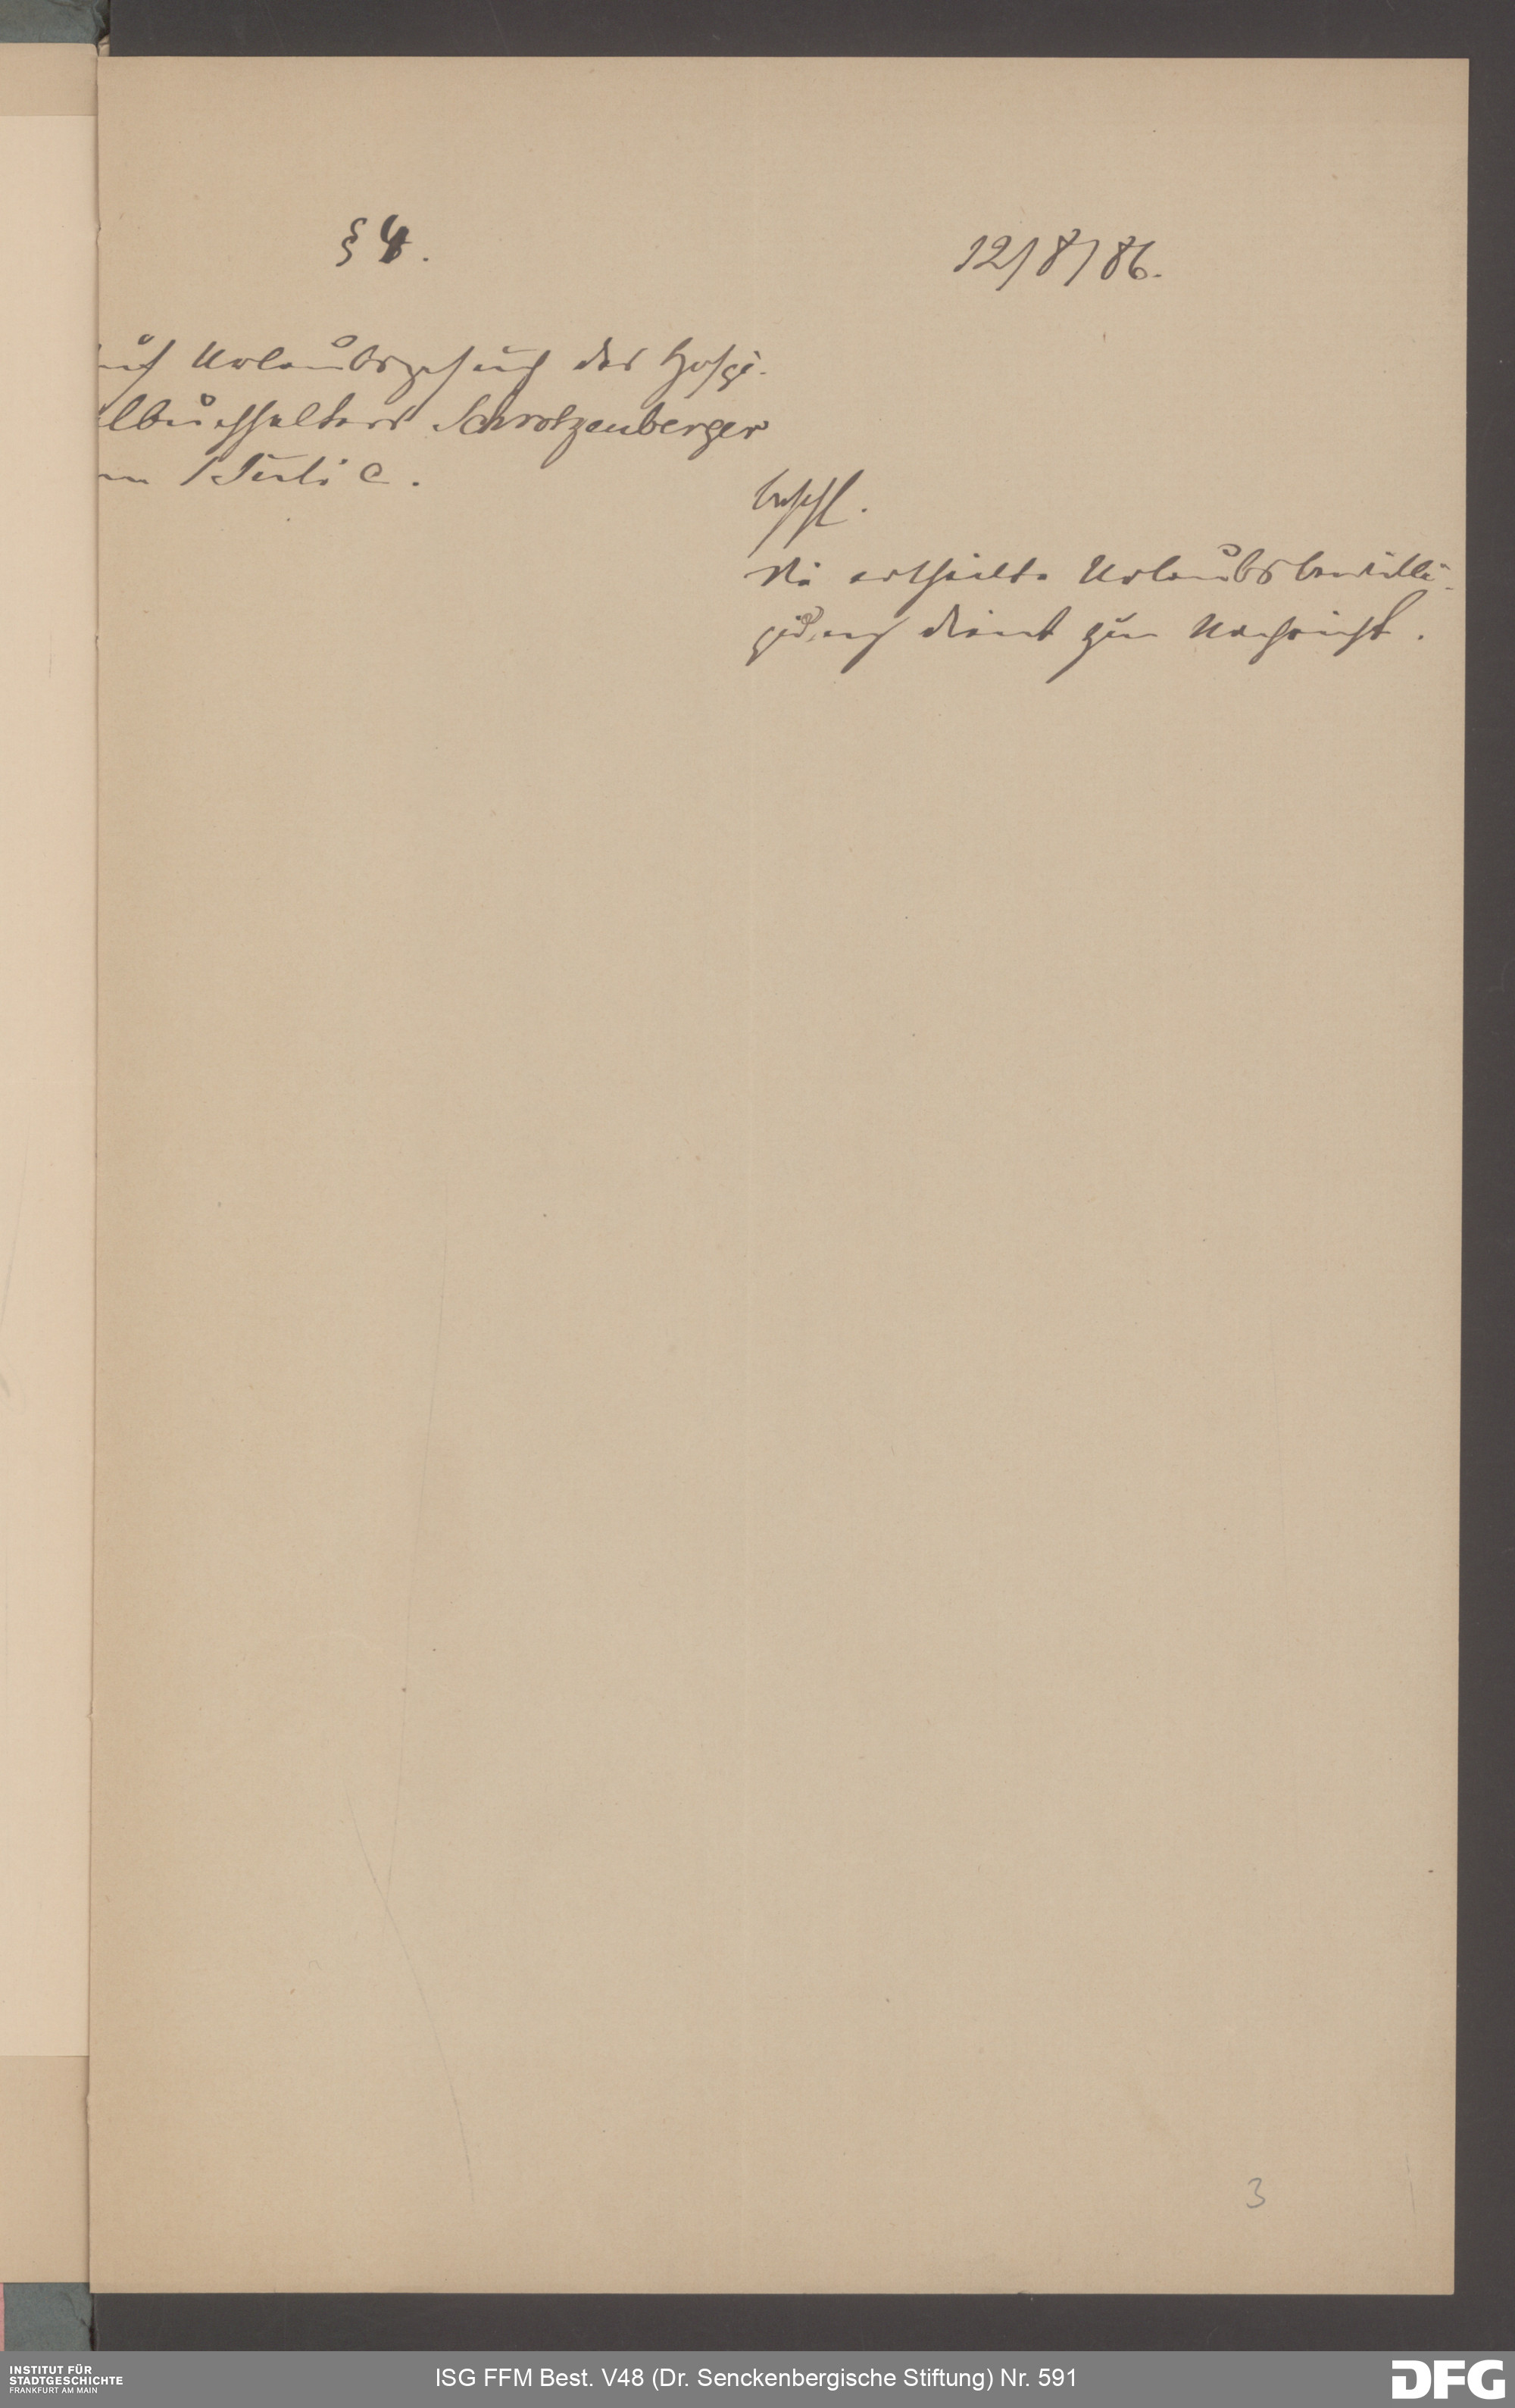 § 4.
12/8/86.
auf Urlaubsgesuch des Hospi-
lbuchhalters Schrotzenberger
m 1 Juli c.
beschl.
die ertheilte Urlaubsbewilli-
gung dient zur Nachricht.
3
INSTITUT FÜR
STADTGESCHICHTE
FRANKFURT AM MAIN
ISG FFM Best. V48 (Dr. Senckenbergische Stiftung) Nr. 591
DFG